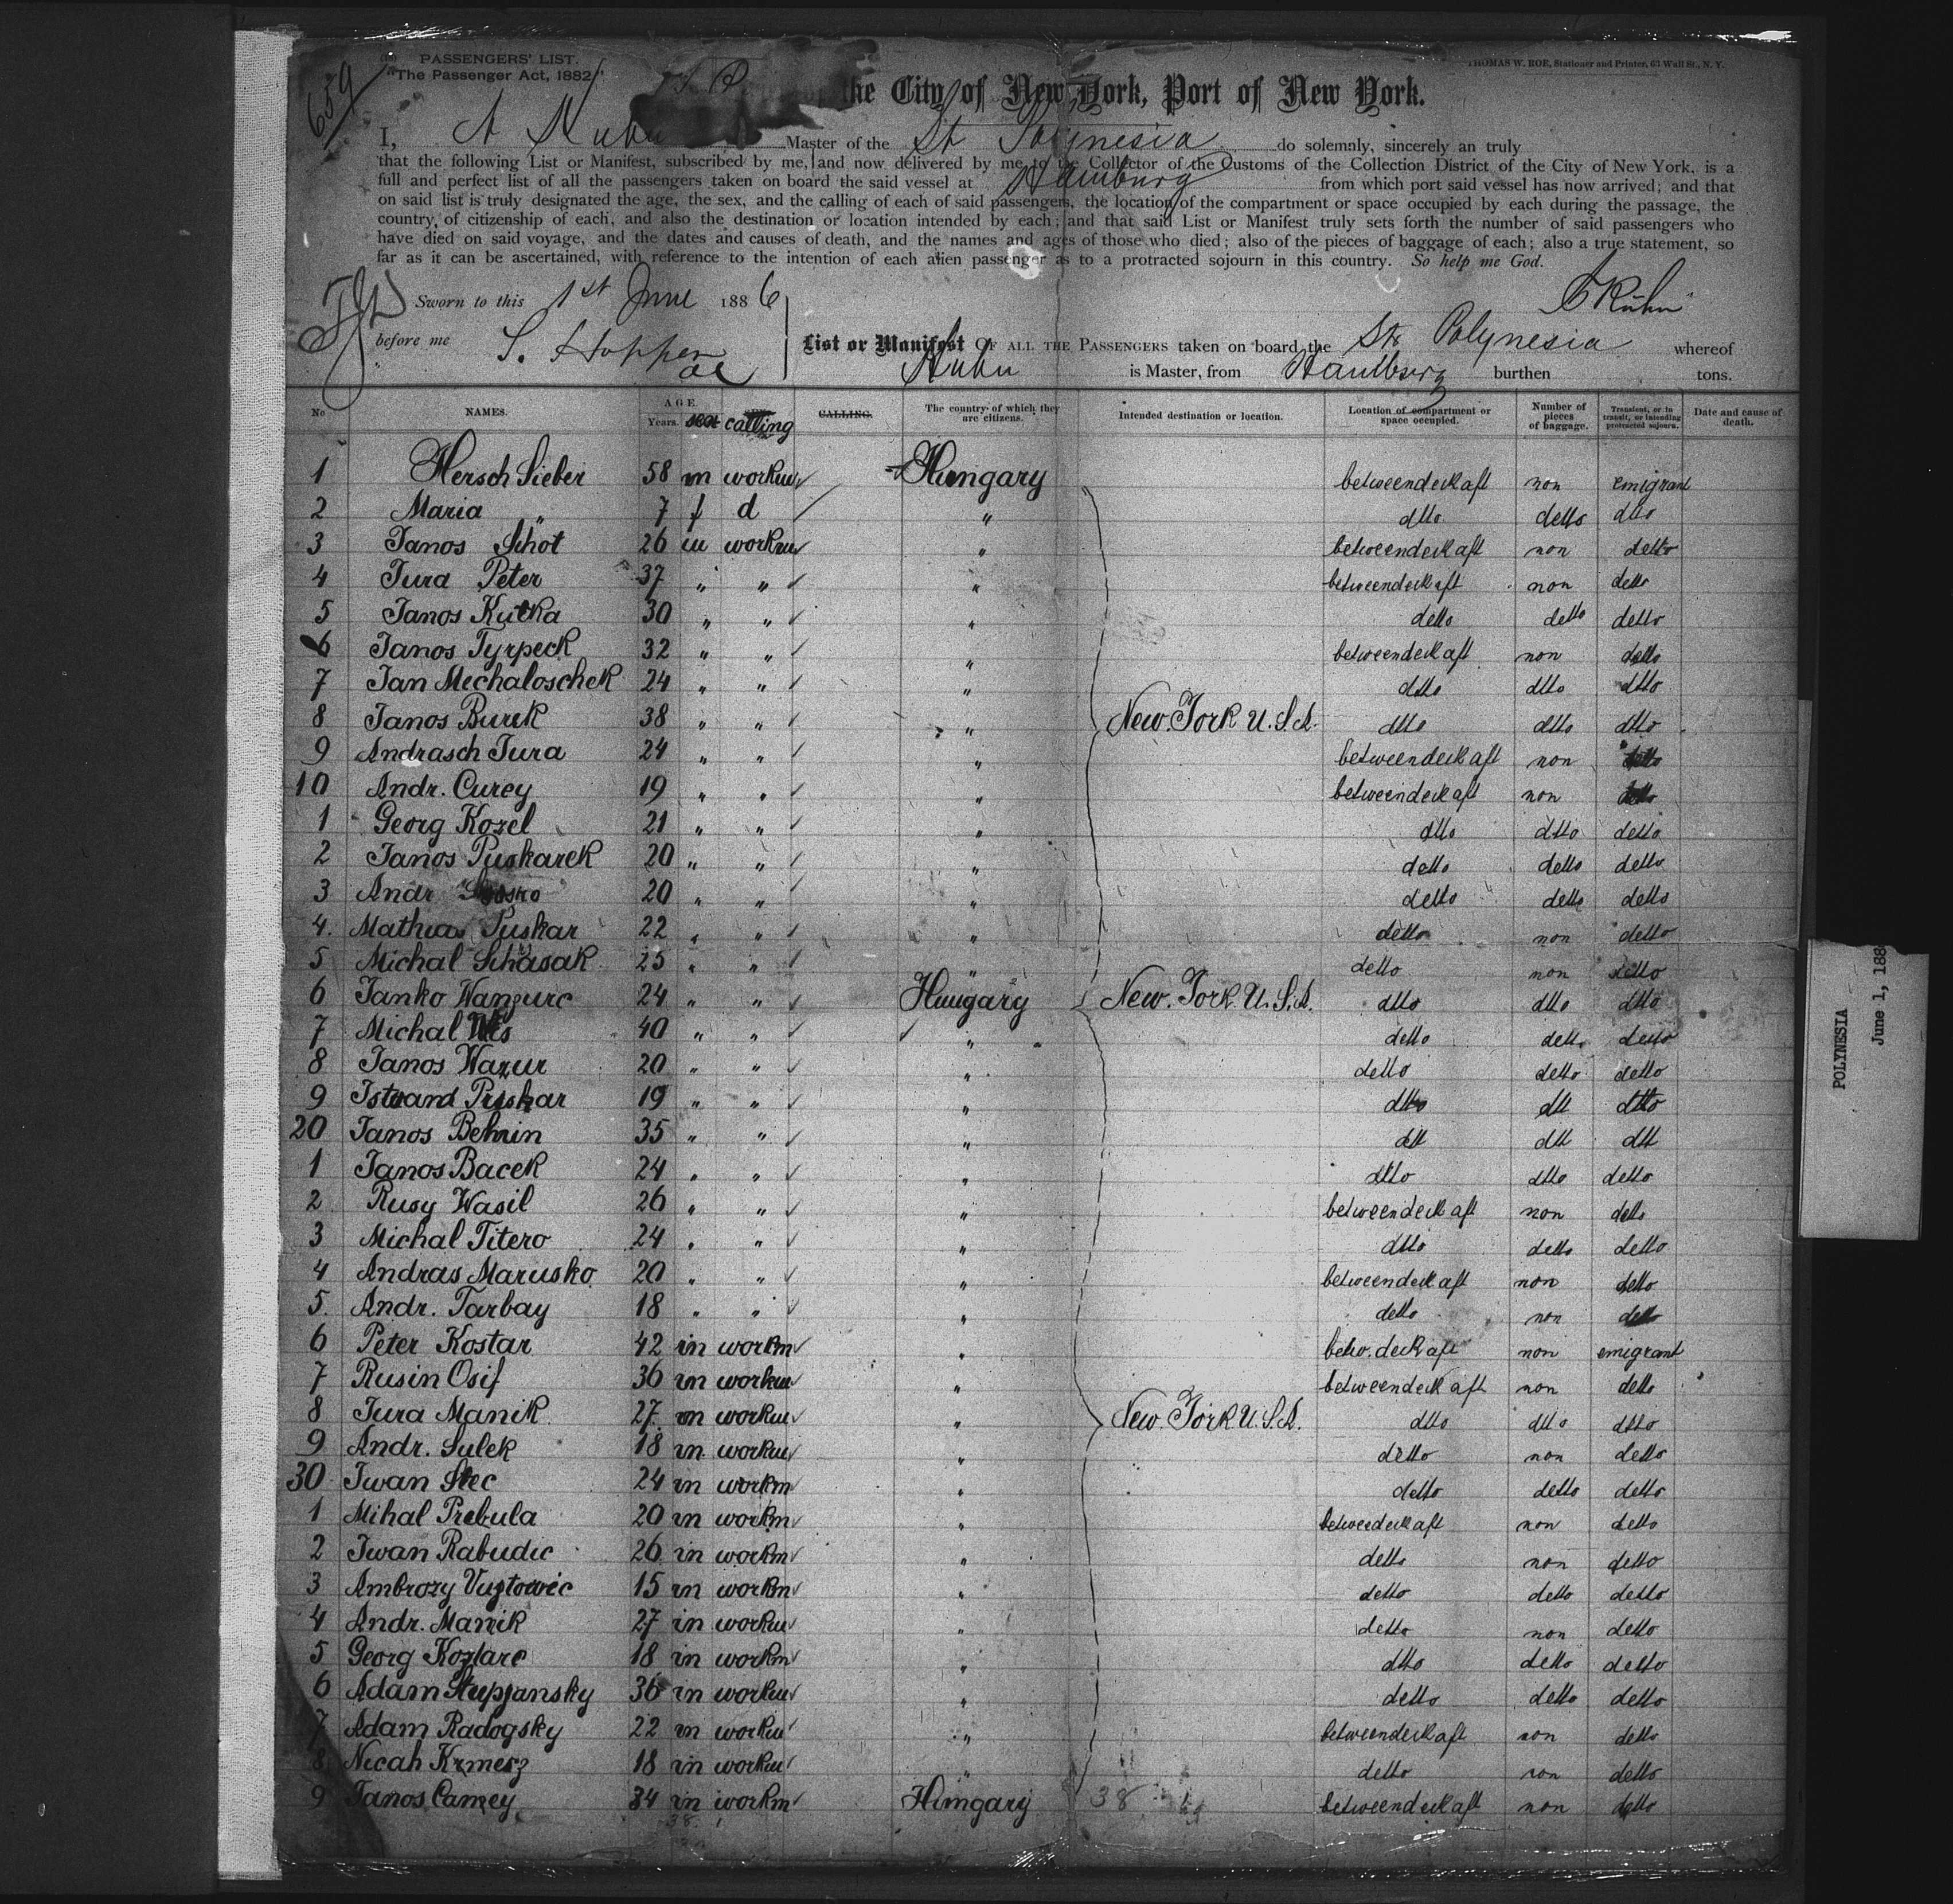 659
PASSENGERS' LIST.
"The Passenger Act, 1882."
THOMAS W. ROE, Stationer and Printer, 63 Wall St., N. Y.
the City of New York, Port of New York.
I, Master of the St Polynesia do solemnly, sincerely an truly
that the following List or Manifest, subscribed by me, and now delivered by me to the Collector of the Customs of the Collection District of the City of New York, is a
full and perfect list of all the passengers taken on board the said vessel at Hamburg from which port said vessel has now arrived; and that
on said list is truly designated the age, the sex, and the calling of each of said passengers, the location of the compartment or space occupied by each during the passage, the
country of citizenship of each, and also the destination or location intended by each; and that said List or Manifest truly sets forth the number of said passengers who
have died on said voyage, and the dates and causes of death, and the names and ages of those who died; also of the pieces of baggage of each; also a true statement, so
far as it can be ascertained, with reference to the intention of each alien passenger as to a protracted sojourn in this country. So help me God.
Sworn to this 1st June 1886 Kühn
before me S. Hopper List or Manifest OF ALL THE PASSENGERS taken on board the Str Polynesia whereof
Kuhn is Master, from Hamburg burthen tons.
No NAMES. AGE. Years. sex calling CALLING. The country of which they are citizens. Intended destination or location. Location of compartment or space occupied. Number of pieces of baggage. Transient, or in transit, or intending protracted sojourn. Date and cause of death.
1 Hersch Lieber 58 m workm Hungary betweendeck aft non emigrant
2 Maria " 7 f d " dtto detto dtto
3 Janos Schot 26 m workm " betweendeck aft non detto
4 Jura Peter 37 " " " betweendeck aft non detto
5 Janos Kutka 30 " " " detto detto detto
6 Janos Tyrpeck 32 " " " betweendeck aft non detto
7 Jan Mechaloschek 24 " " " dtto dtto dtto
8 Janos Burek 38 " " " New.York U.S.A. dtto dtto dtto
9 Andrasch Jura 24 " " " betweendeck aft non detto
10 Andr. Curey 19 " " " betweendeck aft non detto
1 Georg Kozel 21 " " " dtto dtto detto
2 Janos Puskarek 20 " " " detto detto detto
3 Andr 20 " " " detto detto detto
4. Mathias Puskar 22 " " " detto non detto
5 Michal Schasak 25 " " " detto non detto
6 Janko Wanzurc 24 " " Hungary New.York U.S.A. dtto dtto dtto
7 Michal 40 " " " detto detto detto
8 Janos Wazur 20 " " " detto detto detto
9 Istwand Puskar 19 " " " dtto dtt dtto
20 Janos Behrin 35 " " " dtt dtt dtt
1 Janos Bacek 24 " " " dtto dtto detto
2 Rusy Wasil 26 " " " betweendeck aft non detto
3 Michal Titero 24 " " " dtto detto detto
4 Andras Marusko 20 " " " betweendeck aft non detto
5. Andr. Tarbay 18 " " " detto non detto
6 Peter Kostar 42 m workm " betw. deck aft non emigrant
7 Rusin Osif 36 m workm " betweendeck aft non detto
8 Jura Manik 27 m workm " New.York U.S.A. dtto dtto dtto
9 Andr. Sulek 18 m workm " detto non detto
30 Iwan Stec 24 m workm " detto detto detto
1 Mihal Prebula 20 m workm " betweedeck aft non detto
2 Iwan Rabudic 26 m workm " detto non detto
3 Ambrozy Vuytowic 15 m workm " detto detto detto
4 Andr. Manik 27 m workm " detto non detto
5 Georg Kozlarc 18 m workm " dtto detto detto
6 Adam Stupjansky 36 m workm " detto detto detto
7 Adam Radogsky 22 m workm " betweendeck aft non detto
8 Nicah Krmesz 18 m workm " detto non detto
9 Janos Camey 34 m workm Hungary 38 betweendeck aft non detto
38
POLYNESIA
June 1, 188